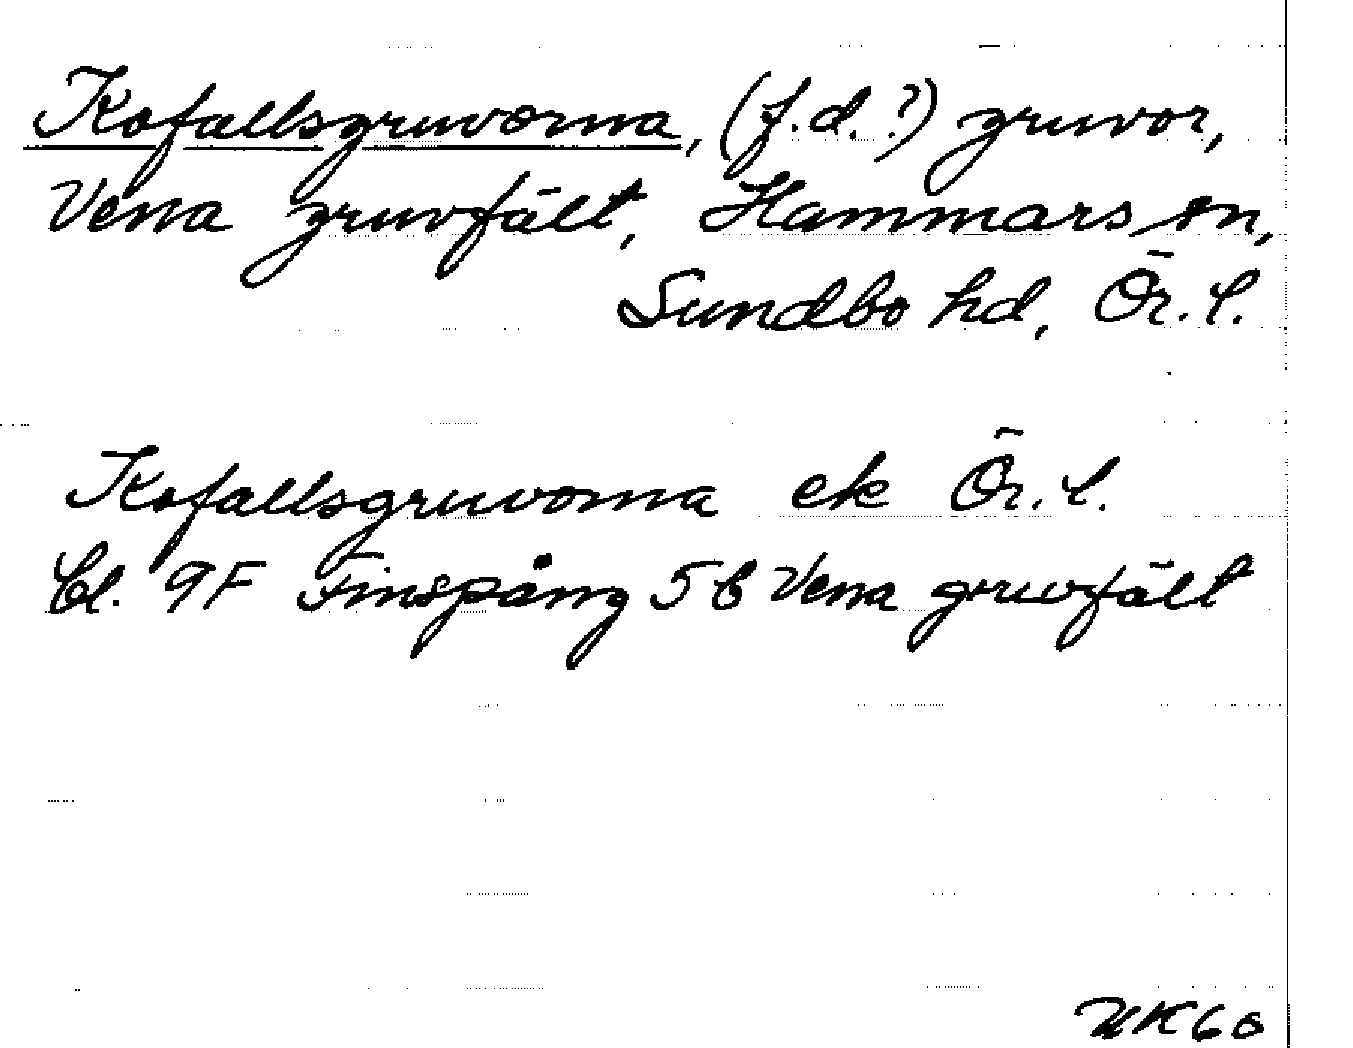 Kofallsgruvorna, (f.d.?) gruvor,
Vena gruvfält, Hammars sn,
Sundbo hd, Ör. l.
Kofallsgruvorna ek Ör. l.
bl. 9F Finspång 5 b Vena gruvfält